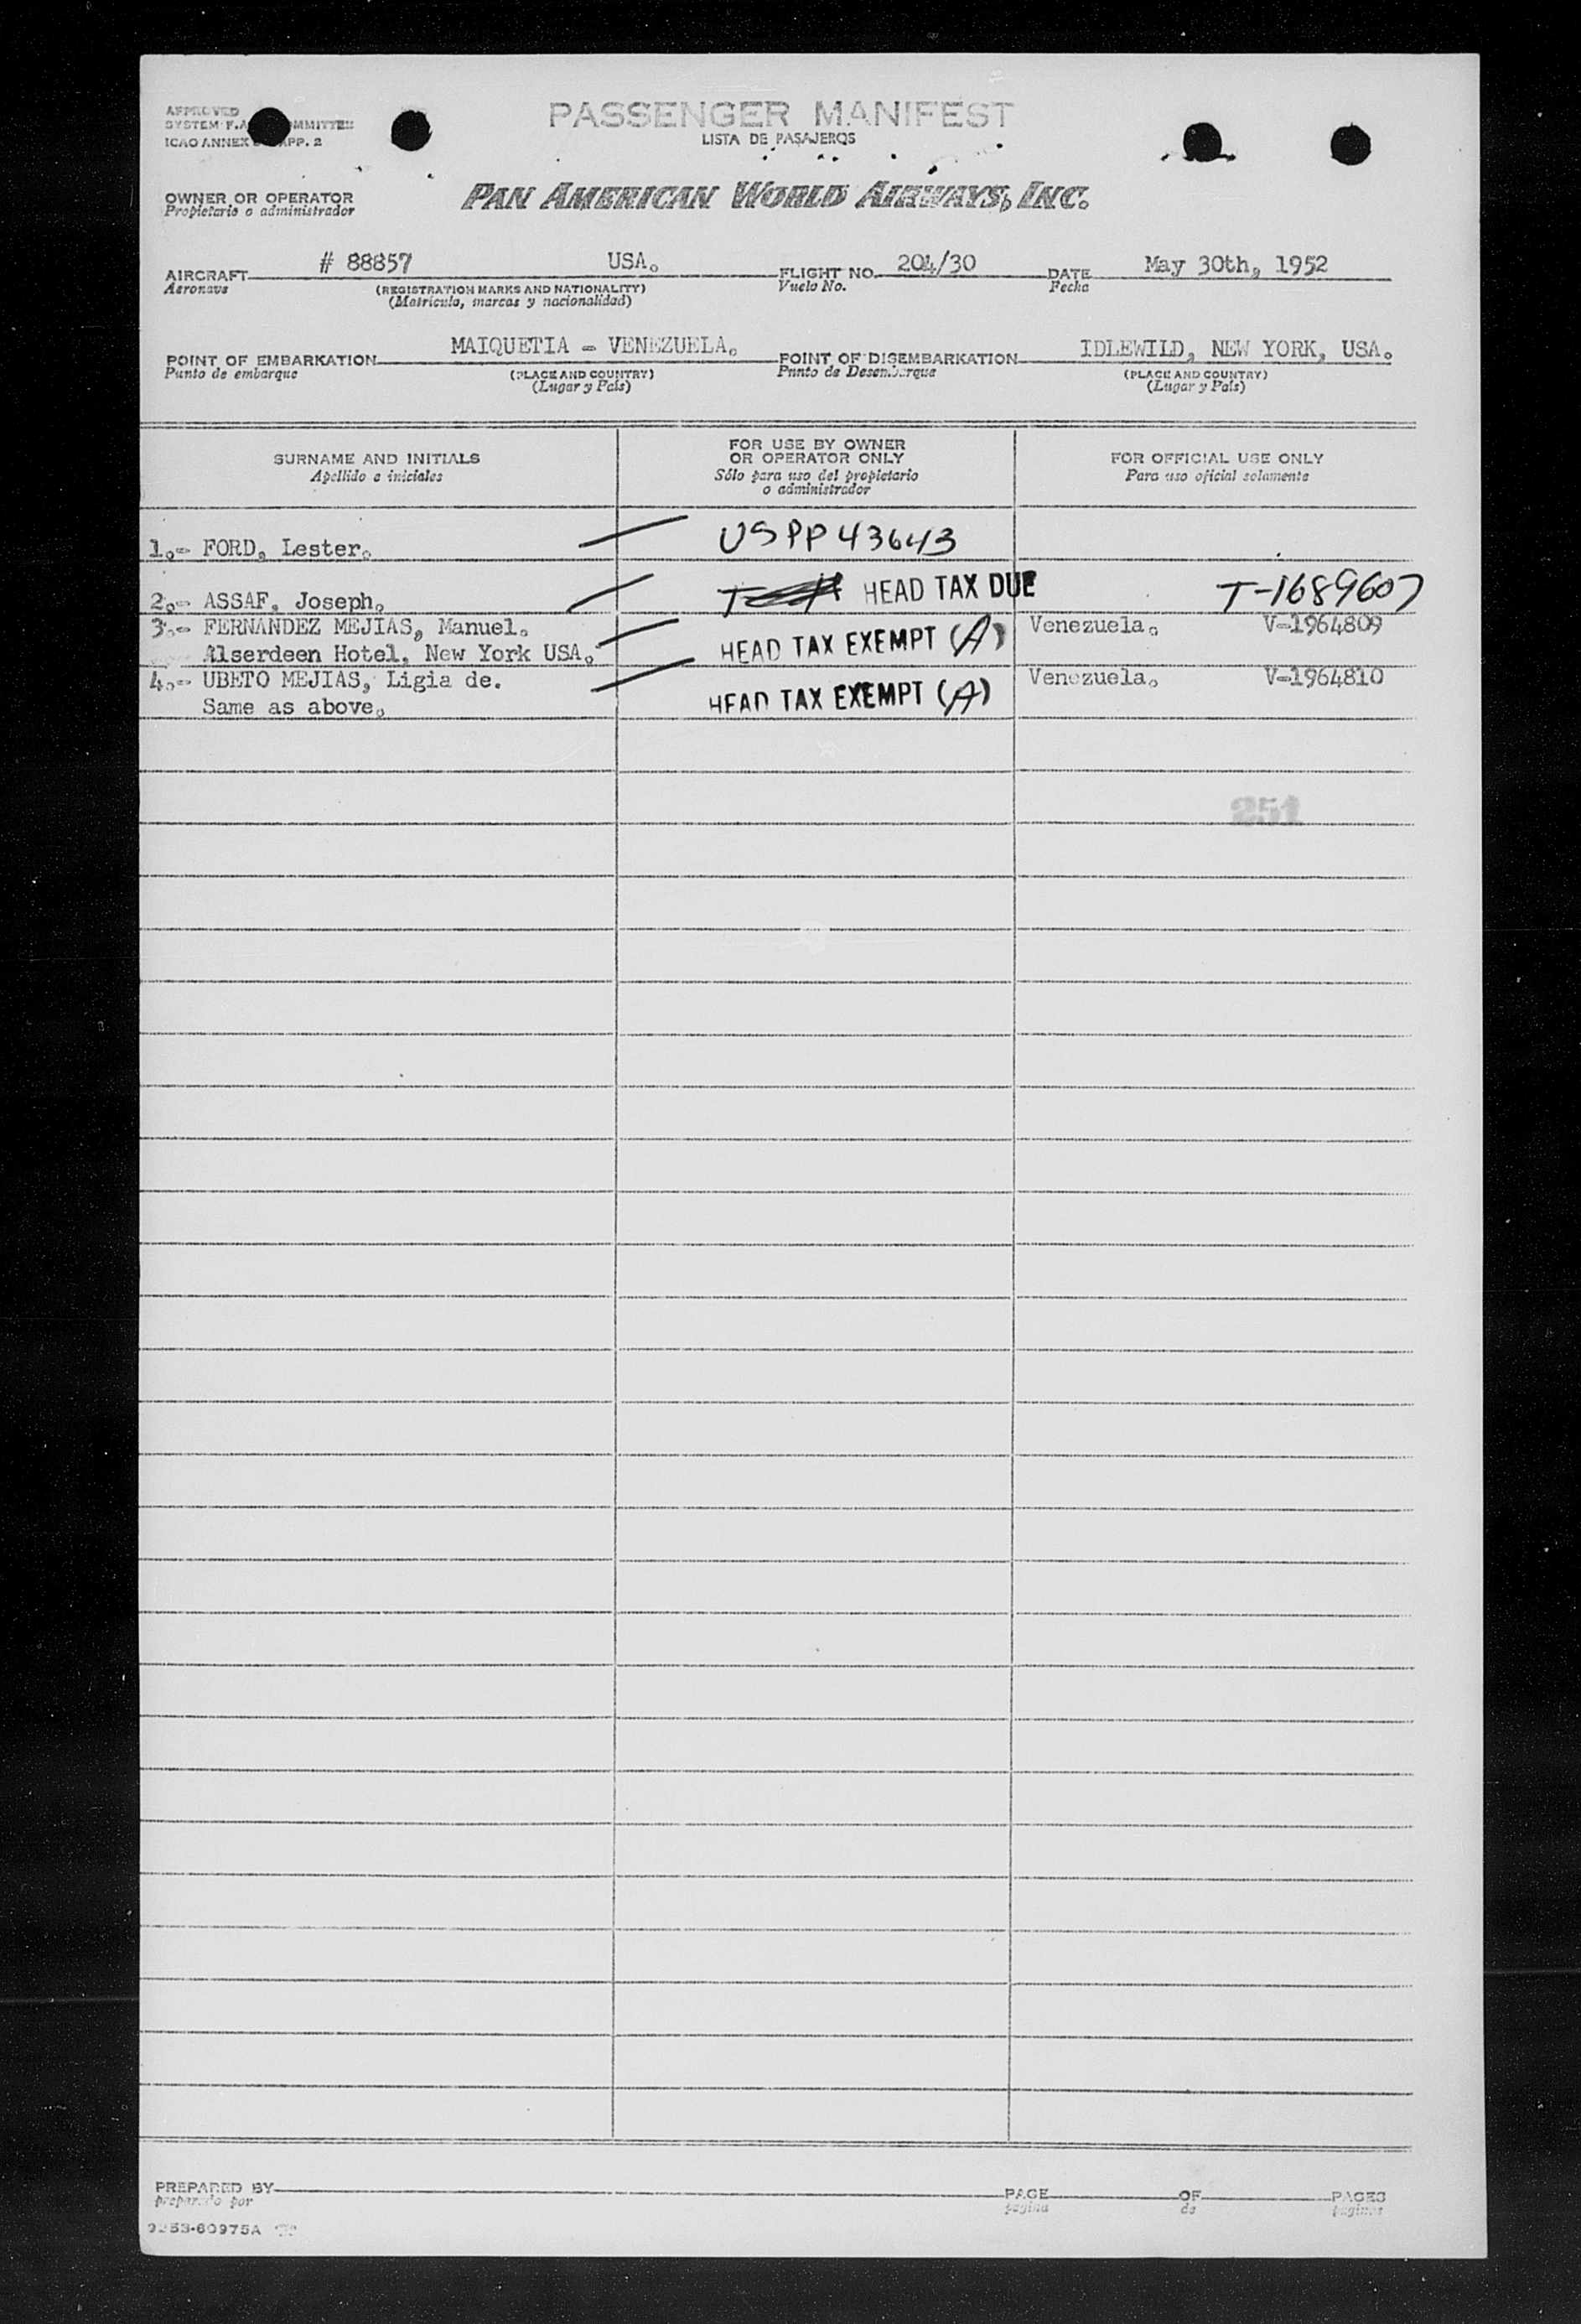 APPROVED
SYSTEM F.A. COMMITTEE
ICAO ANNEX APP. 2
PASSENGER MANIFEST
LISTA DE PASAJEROS
OWNER OR OPERATOR
Propietario o administrador
PAN AMERICAN WORLD AIRWAYS, INC.
AIRCRAFT # 88857 USA. FLIGHT NO. 204/30 DATE May 30th, 1952
Aeronave (REGISTRATION MARKS AND NATIONALITY) Vuelo No. Fecha
(Matrícula, marcas y nacionalidad)
POINT OF EMBARKATION MAIQUETIA - VENEZUELA. POINT OF DISEMBARKATION IDLEWILD, NEW YORK, USA.
Punto de embarque (PLACE AND COUNTRY) Punto de Desembarque (PLACE AND COUNTRY)
(Lugar y País) (Lugar y País)
SURNAME AND INITIALS
Apellido e iniciales
FOR USE BY OWNER
OR OPERATOR ONLY
Sólo para uso del propietario
o administrador
FOR OFFICIAL USE ONLY
Para uso oficial solamente
1.- FORD, Lester. USPP 43643
2.- ASSAF, Joseph. HEAD TAX DUE T-1689607
3.- FERNANDEZ MEJIAS, Manuel. HEAD TAX EXEMPT (A) Venezuela. V-1964809
Alserdeen Hotel, New York USA.
4.- UBETO MEJIAS, Ligia de. HEAD TAX EXEMPT (A) Venezuela. V-1964810
Same as above.
251
PREPARED BY PAGE OF PAGES
preparado por pagina de paginas
60975A